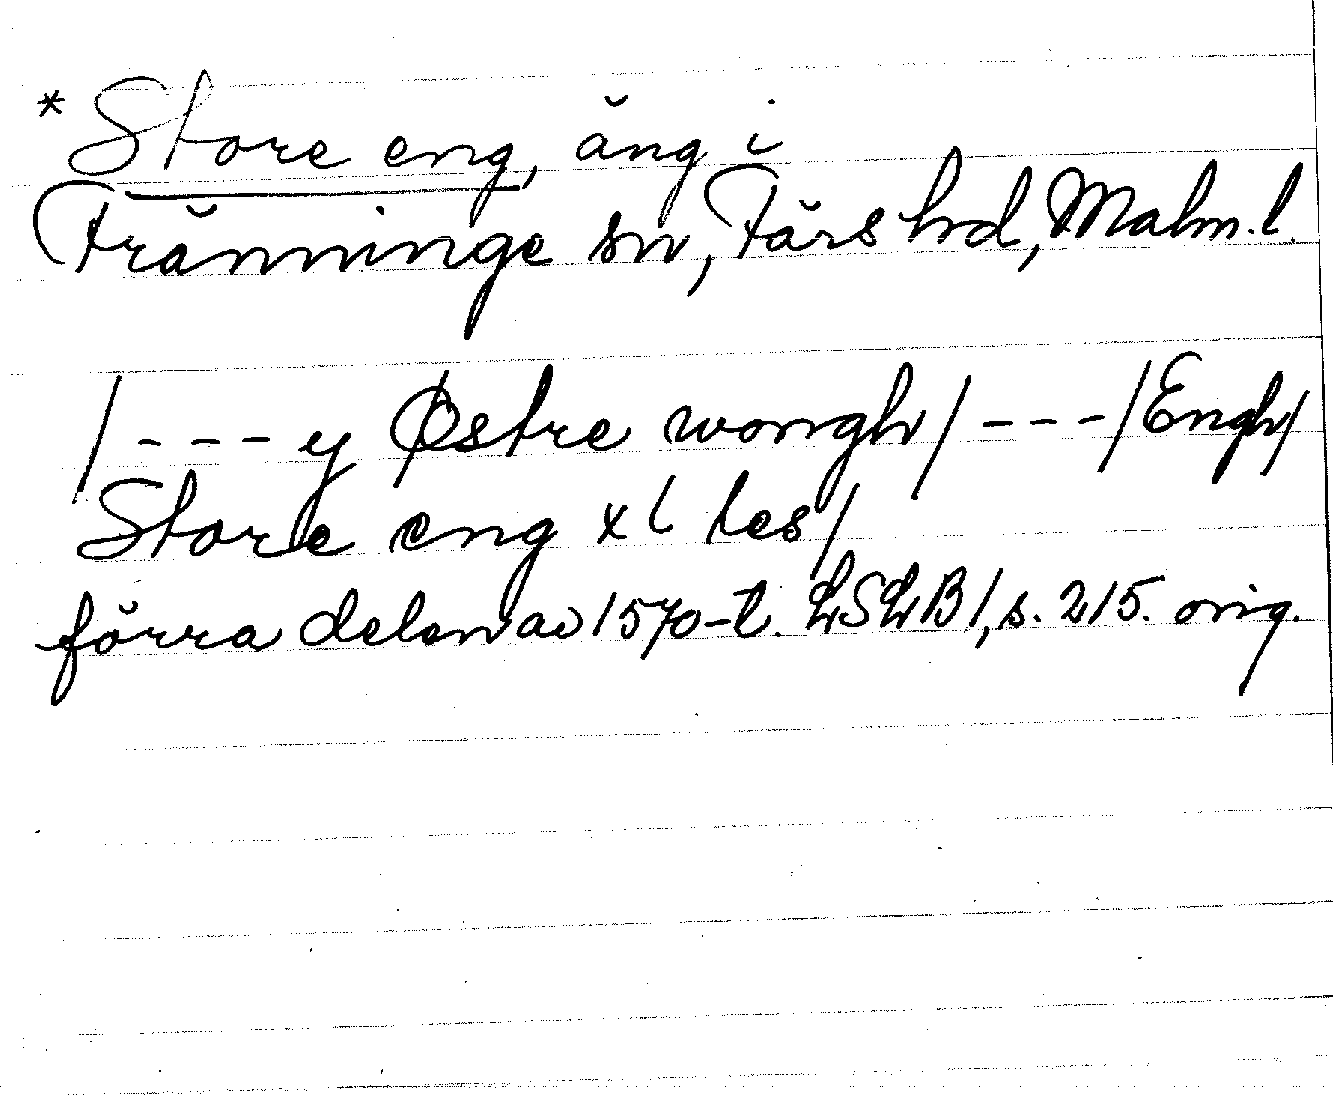 *Store eng, äng i
Fränninge sn, Färs hd, Malm. l.
/ - - - y Østre wongh/ - - - /Engh/
Store eng xl les/
förra delen av 1570-t. LSLB1, s. 215. orig.